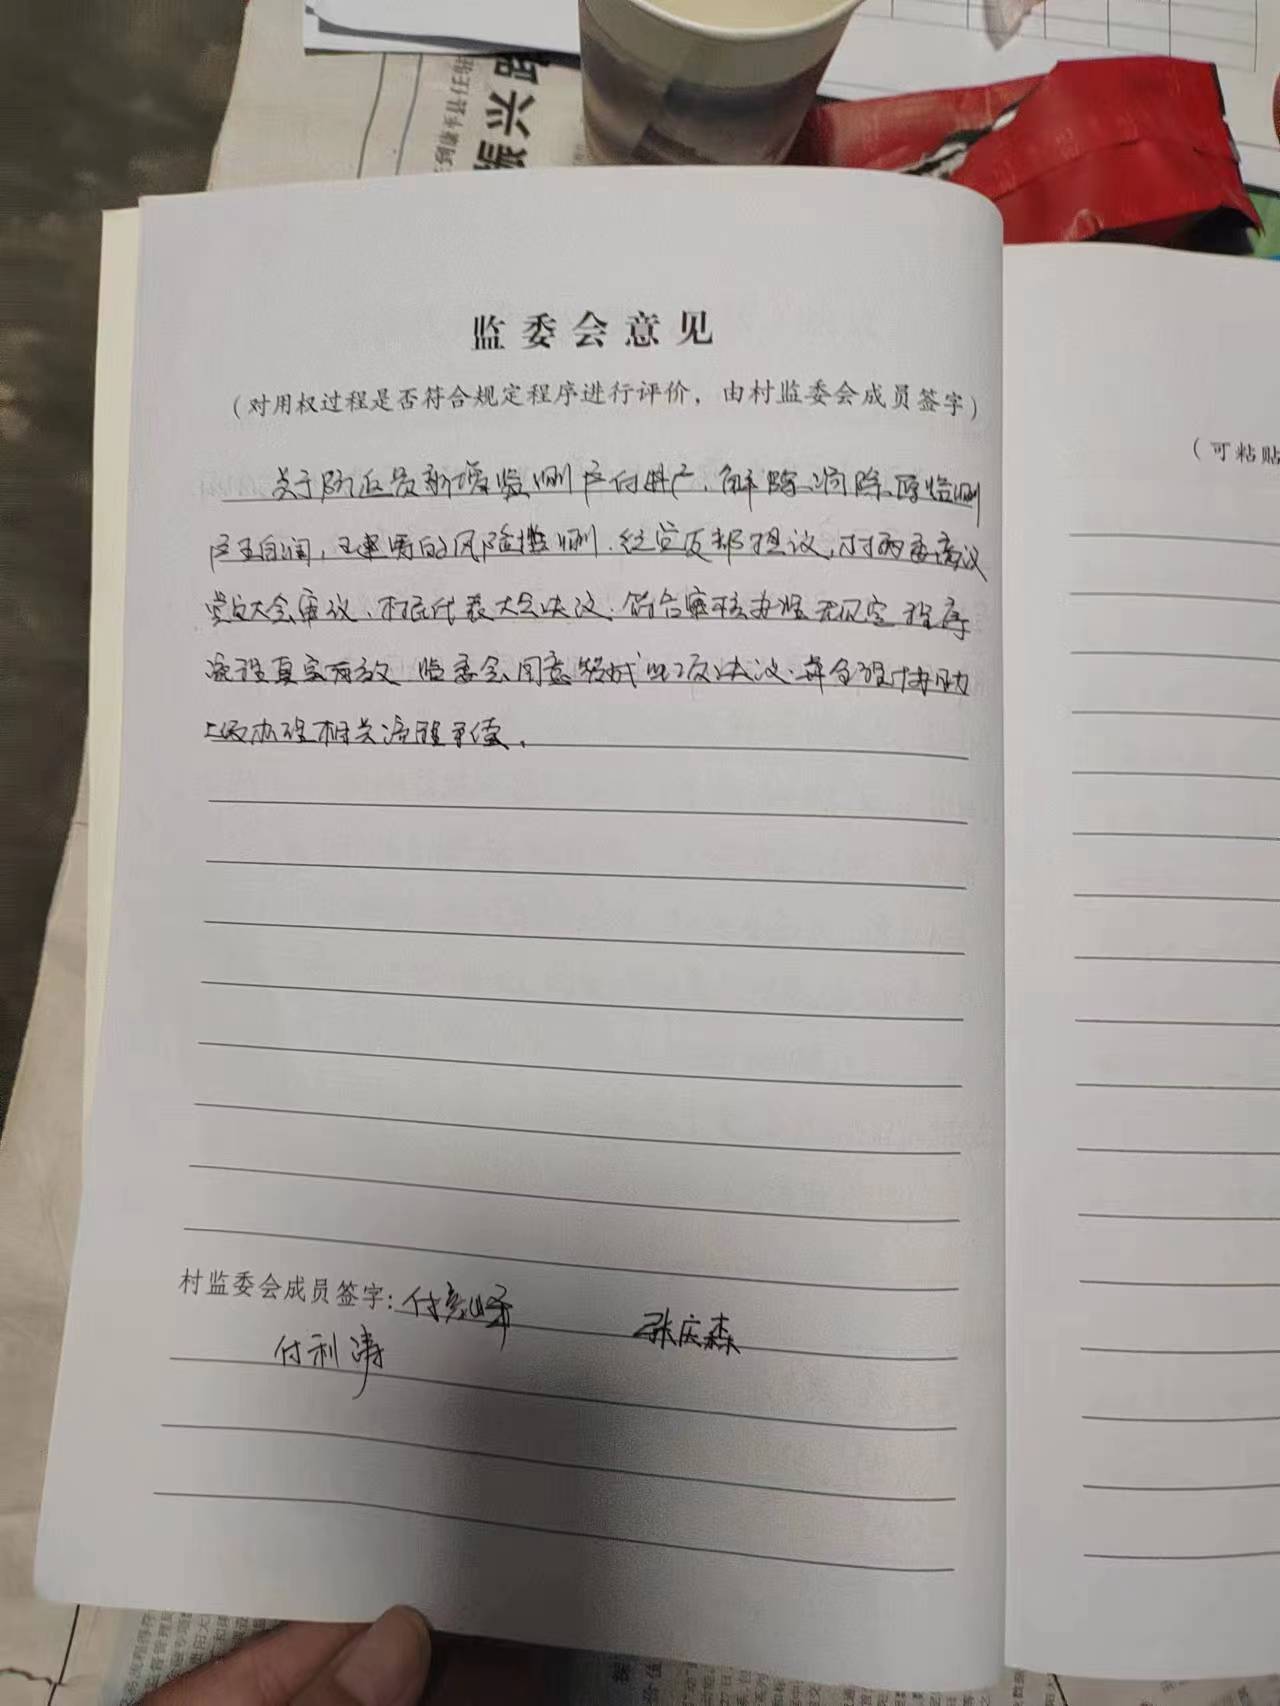 到康平县任驻
振兴
监委会意见
(对用权过程是否符合规定程序进行评价,由村监委会成员签字)
(可粘贴
关于防返贫新增监测户付胜广,解除、消除、原监测
户王自润,王建男的风险监测.经党支部提议,村两委商议
党员大会审议、村民代表大会决议:符合审核办监无规定程序
流程真实有效 监委会同意赞成此次决议.并全程协助
上级办理相关流程手续.
村监委会成员签字:付 峰
张庆森
付利涛